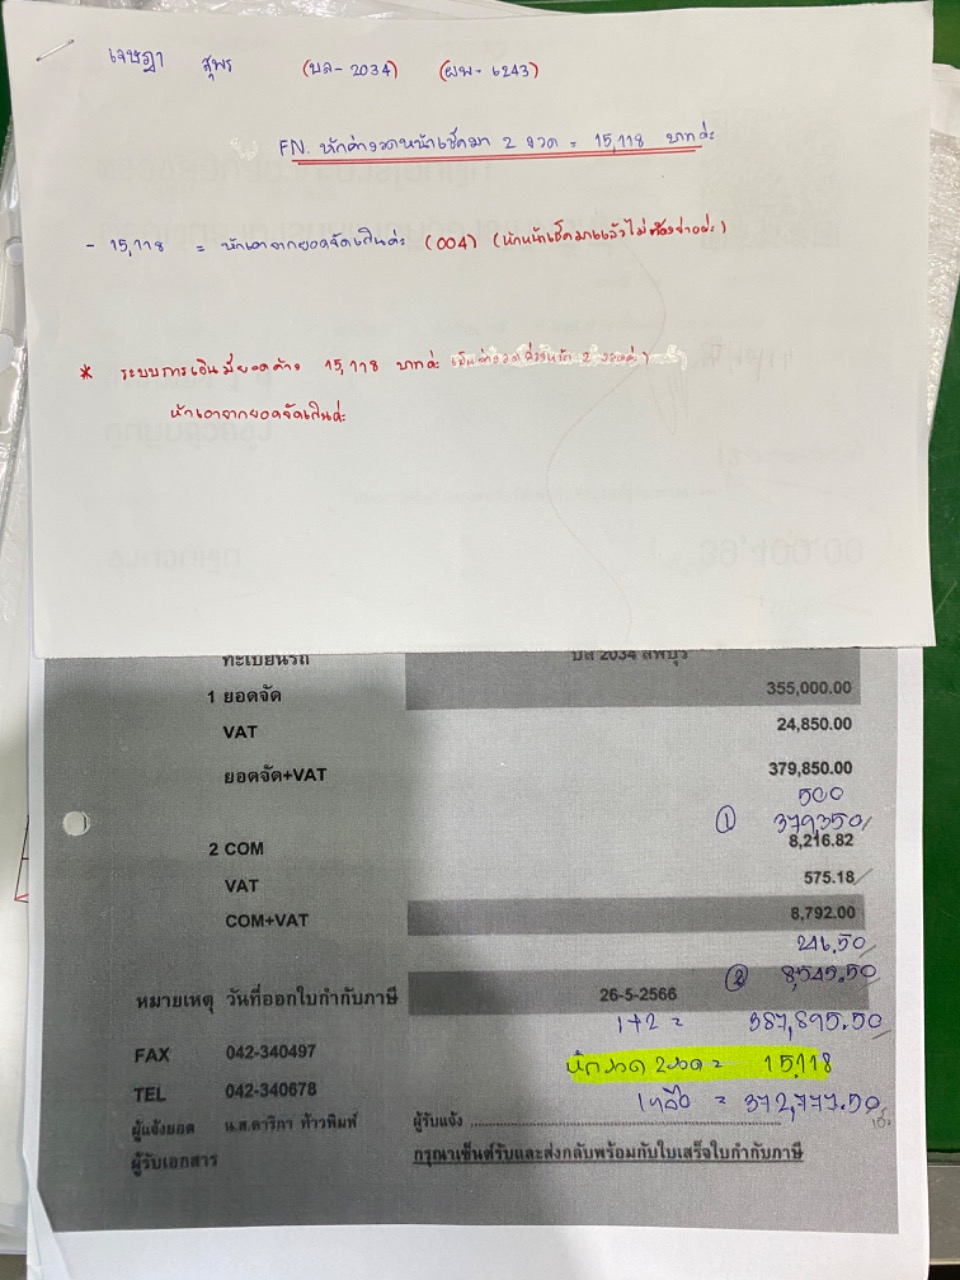 เจษฎา สุพร (บล-2034) (ผพ-6243)
FN. หักค่างวดหน้าเช็คมา 2 งวด = 15,118 บาทค่ะ
- 15,118 = หักเอาจากยอดจัดเกินค่ะ (004) (หักหน้าเช็คมาแล้วไม่ต้องจ่ายค่ะ)
* ระบบการเงินมียอดค้าง 15,118 บาทค่ะ
หักเอาจากยอดจัดเกินค่ะ
ทะเบียนรถ 2034 ลพบุรี
1 ยอดจัด 355,000.00
VAT 24,850.00
ยอดจัด+VAT 379,850.00
500
① 379,350/
2 COM 8,216.82
VAT 575.18
COM+VAT 8,792.00
246.50
② 8,545.50
หมายเหตุ วันที่ออกใบกำกับภาษี 26-5-2566
1+2 = 387,895.50
FAX 042-340497
หักงวด 2งวด = 15,118
TEL 042-340678
เหลือ = 372,777.50
ผู้แจ้งยอด น.ส.ดาริกา ท้าวพิมพ์ ผู้รับแจ้ง
ผู้รับเอกสาร กรุณาเซ็นต์รับและส่งกลับพร้อมกับใบเสร็จใบกำกับภาษี